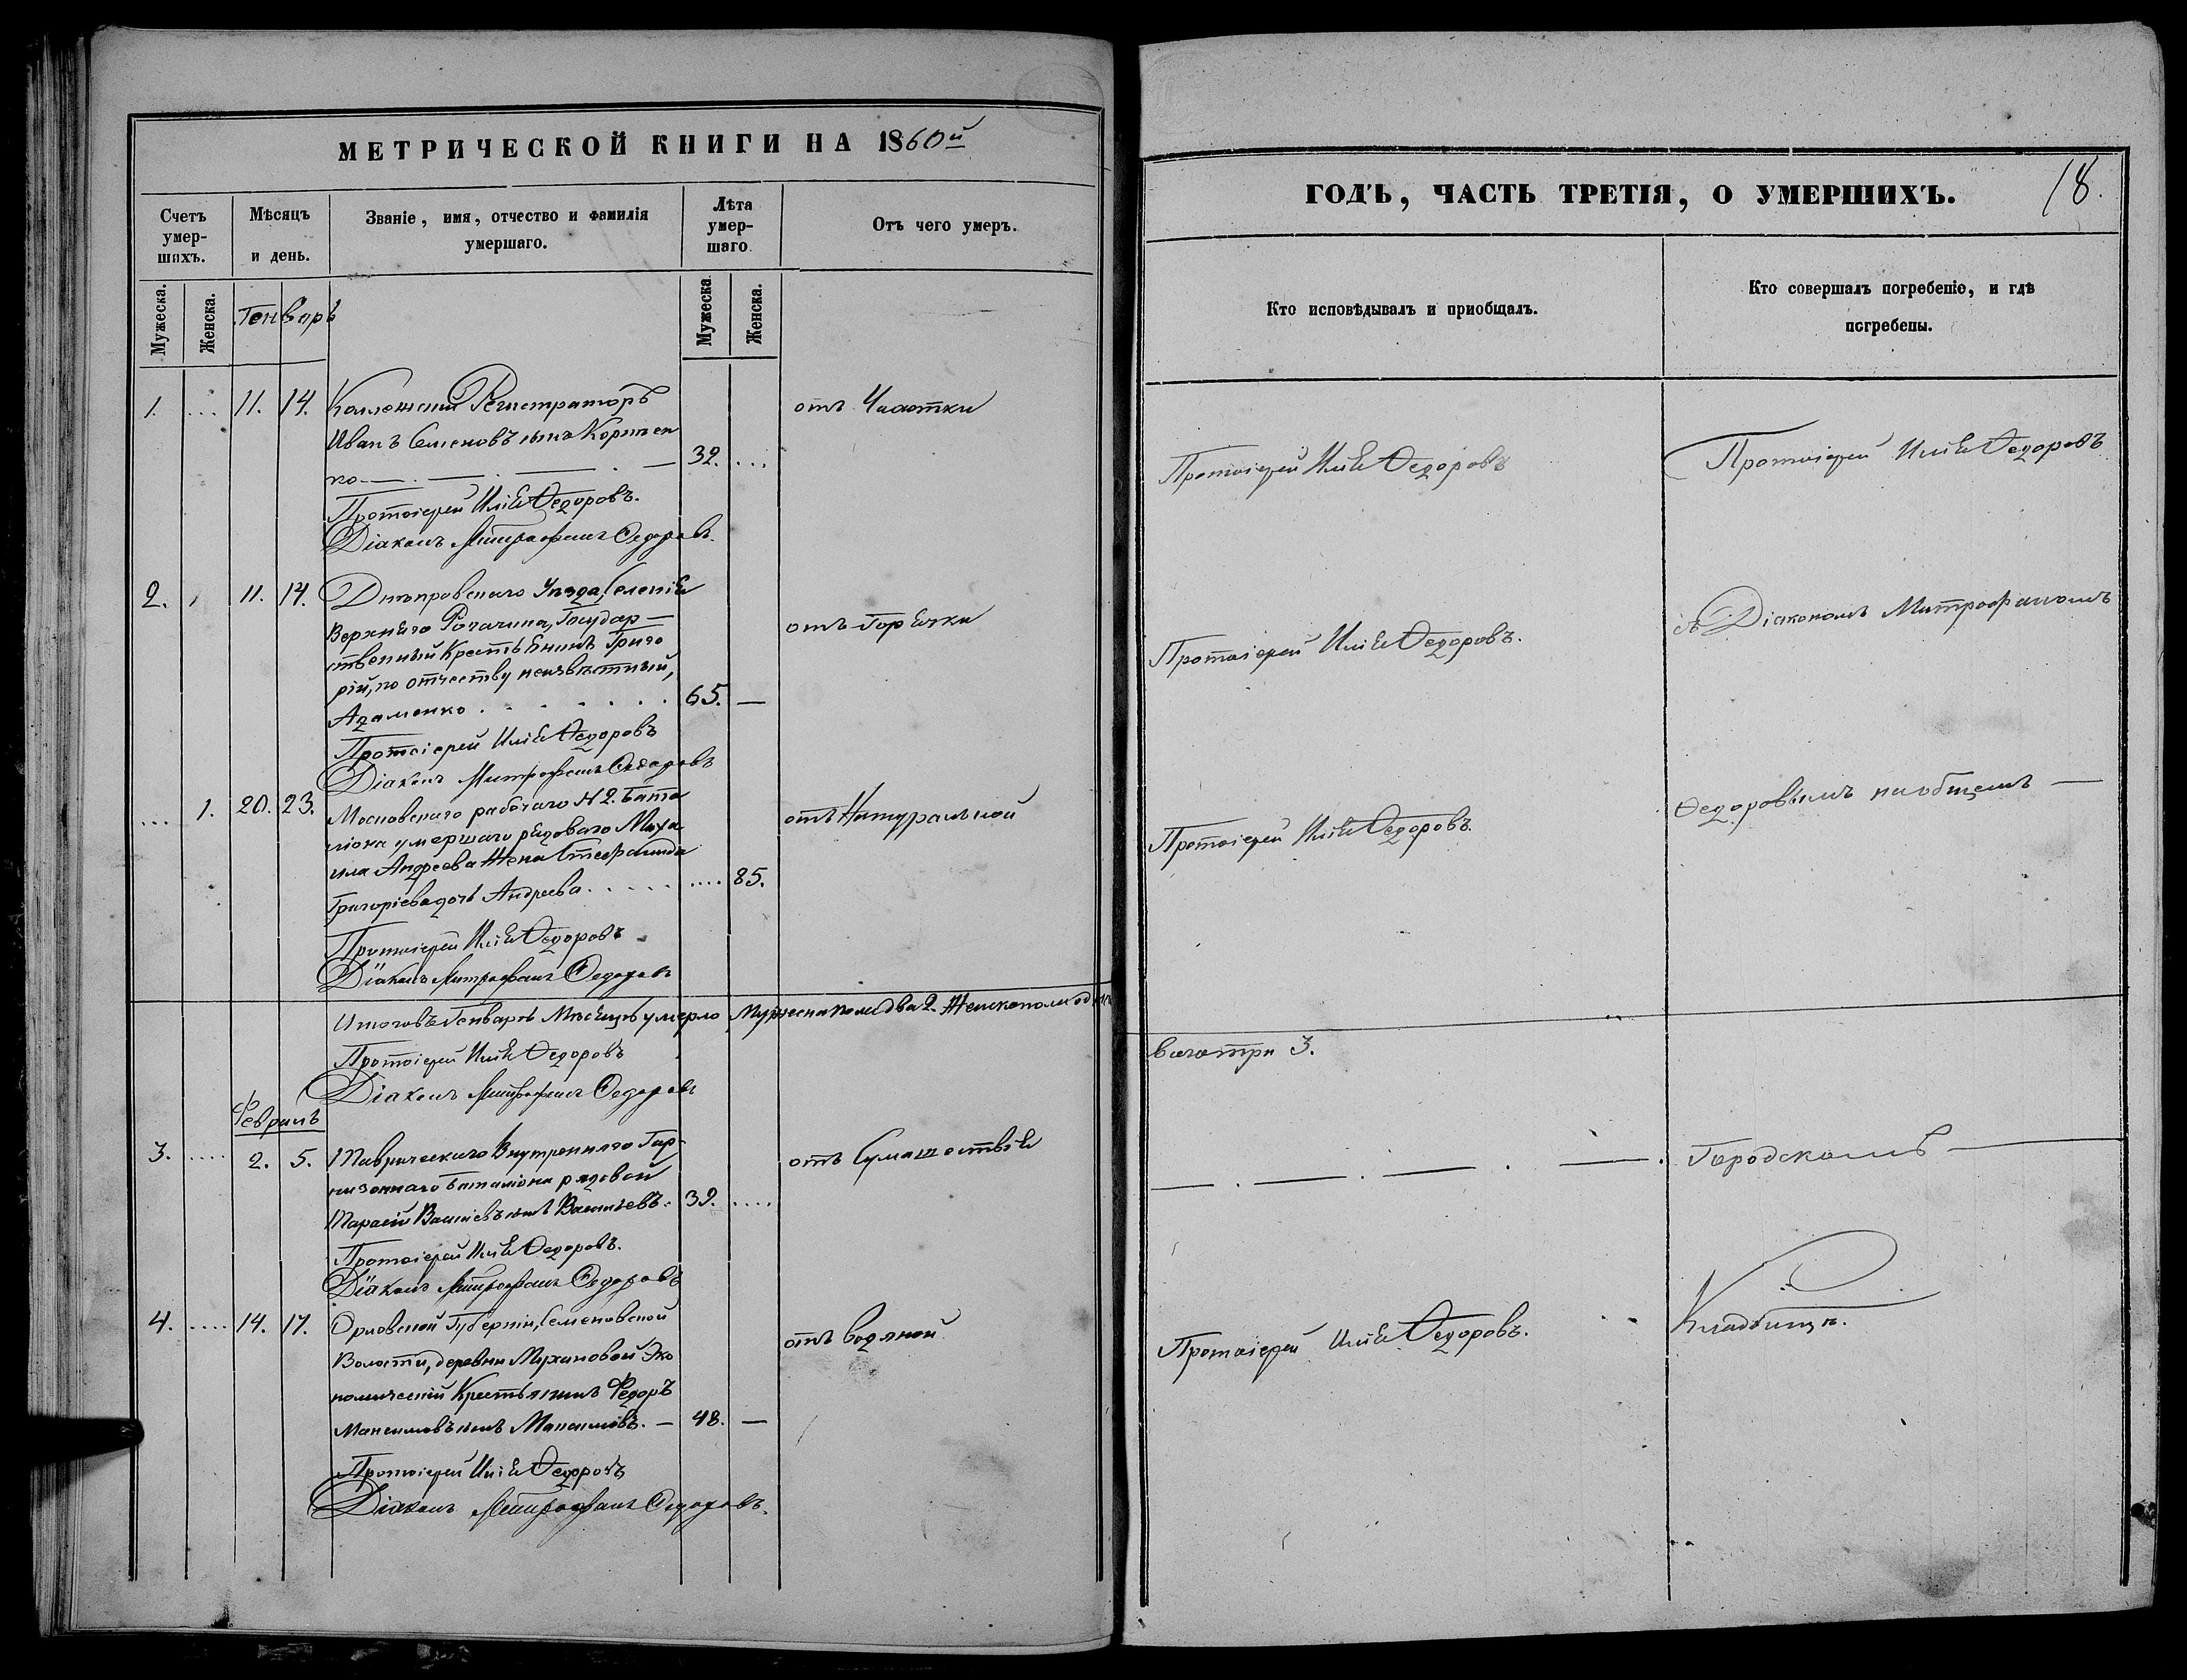 МЕТРИЧЕСКОЙ КНИГИ НА 1860й
Счетъ умер-шихъ.
Мѣсяцъ и день.
Званіе, имя, отчество и фамилія умершаго.
Лѣта умер-шаго.
Отъ чего умеръ.
Мужеска.
Женска.
Генварь
Мужеска
Женска.
1. ... 11. 14. Коллежскій Регистраторъ
отъ Чахотки
Иванъ Семеновъ сынъ Коржен
ко 32. ...
Протоіерей Илія Ѳедоровъ.
Діаконъ Митрофанъ Ѳедоровъ.
2. 11. 14. Днѣпровскаго Уѣзда, Селенія
Верхняго Рогачика, Государ-
отъ Горячки
ственный Крестьянинъ Григо
рій, по отчеству неизвѣстный,
Адаменко . . . . . . . 65. —
Протоіерей Илія Ѳедоровъ
Діаконъ Митрофанъ Ѳедоровъ
... 1. 20. 23. Московскаго рабочаго № 2. Бата
отъ Натуральной
ліона умершаго рядоваго Миха
ила Андреева Жена Стефанида
Григоріева дочь Андреева . . . . . .... 85.
Протоіерей Илія Ѳедоровъ
Діаконъ Митрофанъ Ѳедоровъ
Итого въ Генварѣ Мѣсяцѣ умерло Мужеска пола два 2. Женска пола одна
Протоіерей Илія Ѳедоровъ
Діаконъ Митрофанъ Ѳедоровъ
Февраль
3. .... 2. 5. Таврическаго Внутренняго Гар-
отъ Сумашествія
низоннаго баталіона рядовой
Тарасій Васильевъ сынъ Васильевъ. 39. ....
Протоіерей Илія Ѳедоровъ.
Діаконъ Митрофанъ Ѳедоровъ
4. .... 14. 17. Орловской Губерніи, Семеновской
отъ водяной
Волости, деревни Мухановой Эко
номическій Крестьянинъ Ѳедоръ
Максимовъ сынъ Максимовъ. — 48. —
Протоіерей Илія Ѳедоровъ
Діаконъ Митрофанъ Ѳедоровъ.
ГОДЪ, ЧАСТЬ ТРЕТІЯ, О УМЕРШИХЪ.
18.
Кто исповѣдывалъ и пріобщалъ.
Кто совершалъ погребеніе, и гдѣ погребены.
Протоіерей Илія Ѳедоровъ
Протоіерей Илія Ѳедоровъ
Протоіерей Илія Ѳедоровъ.
съ Діакономъ Митрофаномъ
Протоіерей Илія Ѳедоровъ.
Ѳедоровымъ на общемъ —
всего три 3.
— . — . — . — .
Городскомъ —
Протоіерей Илія Ѳедоровъ.
Кладбищѣ.